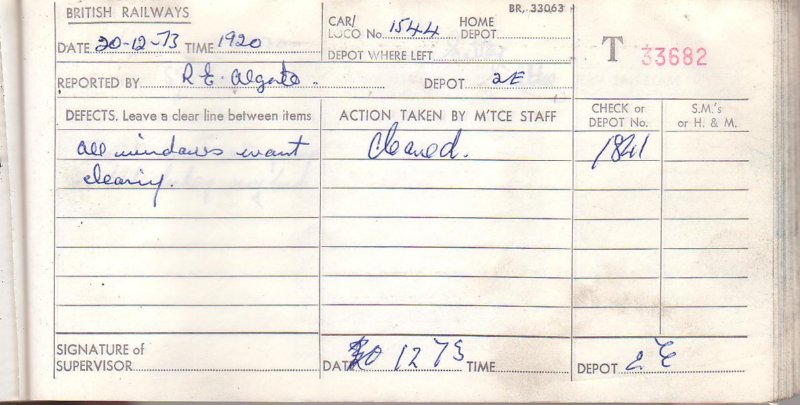 BRITISH RAILWAYS
BR. 33063
DATE 20-12-73 TIME 1920
CAR/ LOCO No. 1544
HOME DEPOT
DEPOT WHERE LEFT
T 33682
REPORTED BY R E. Algate. DEPOT 2E
DEFECTS. Leave a clear line between items
ACTION TAKEN BY M'TCE STAFF
CHECK or DEPOT No.
S.M.'s or H. & M.
All windows want
cleaning.
Cleaned.
1841
SIGNATURE of
SUPERVISOR
DATE 20 12 73 TIME
DEPOT